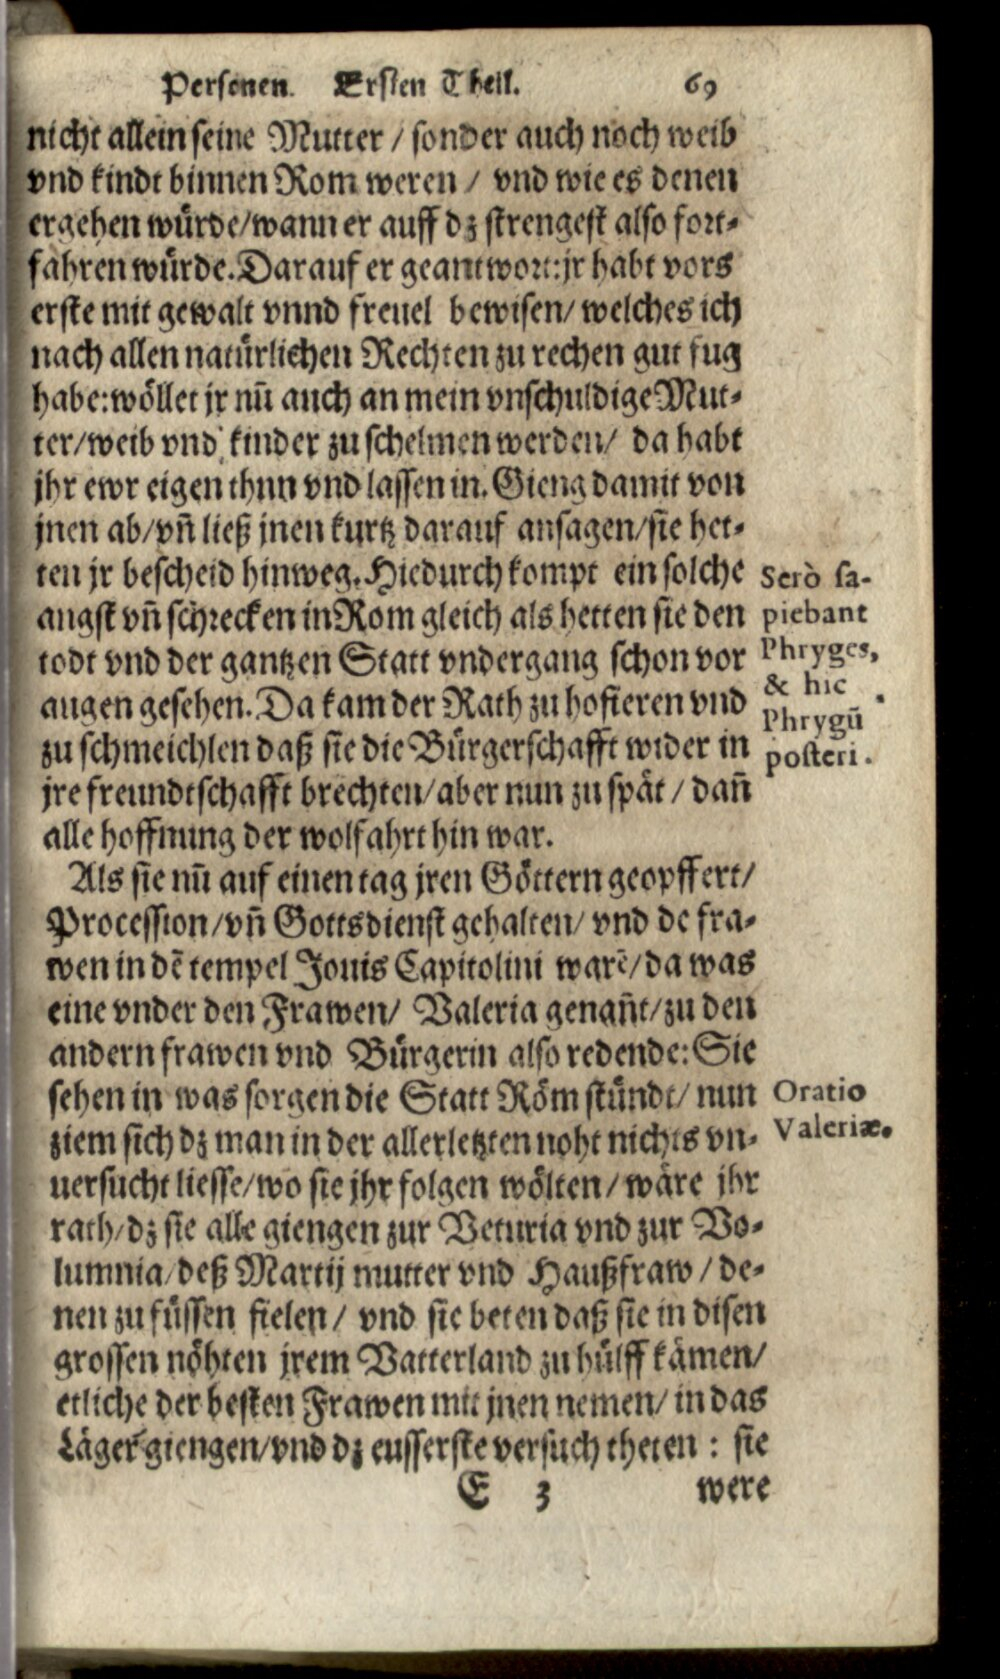 Personen. Ersten Theil. 69
nicht allein seine Mutter / sonder auch noch weib
vnd kindt binnen Rom weren / vnd wie es denen
ergehen wuͤrde/wann er auff dz strengest also fort-
fahren wuͤrde. Darauf er geantwort: jr habt vors
erste mit gewalt vnnd freuel bewisen/ welches ich
nach allen natuͤrlichen Rechten zu rechen gut fug
habe: woͤllet jr nũ auch an mein vnschuldige Mut-
ter/weib vnd kinder zu schelmen werden/ da habt
jhr ewr eigen thun vnd lassen in. Gieng damit von
jnen ab/vñ ließ jnen kurtz darauf ansagen/sie het-
ten jr bescheid hinweg. Hiedurch kompt ein solche
angst vñ schrecken in Rom gleich als hetten sie den
todt vnd der gantzen Statt vndergang schon vor
augen gesehen. Da kam der Rath zu hofieren vnd
zu schmeichlen daß sie die Buͤrgerschafft wider in
jre freundtschafft brechten/aber nun zu spaͤt / dañ
alle hoffnung der wolfahrt hin war.
Serò sa-
piebant
Phryges,
& hic
Phrygũ
posteri.
Als sie nũ auf einen tag jren Goͤttern geopffert/
Procession/vñ Gottsdienst gehalten/ vnd de fra-
wen in dẽ tempel Jouis Capitolini warẽ/da was
eine vnder den Frawen/ Valeria genañt/zu den
andern frawen vnd Buͤrgerin also redende: Sie
sehen in was sorgen die Statt Roͤm stuͤndt/ nun
ziem sich dz man in der allerletzten noht nichts vn-
uersucht liesse/wo sie jhr folgen woͤlten/waͤre jhr
rath/dz sie alle giengen zur Veturia vnd zur Vo-
lumnia/deß Martij mutter vnd Haußfraw / de-
nen zu fuͤssen fielen/ vnd sie beten daß sie in disen
grossen noͤhten jrem Vatterland zu huͤlff kaͤmen/
etliche der besten Frawen mit jnen nemen/ in das
Laͤger giengen/vnd dz eusserste versuch theten : sie
Oratio
Valeriæ.
E 3 were